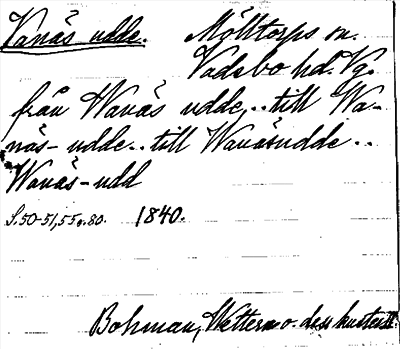 Vanäs udde. Mölltorps sn.
Vadsbo hd. Vg.
från Wanäs udde .. till Wa-
näs-udde .. till Wanäsudde ..
Wanäs-udd
S. 50-51, 55 o. 80. 1840.
Bohman, Wettern o. dess kuster II.